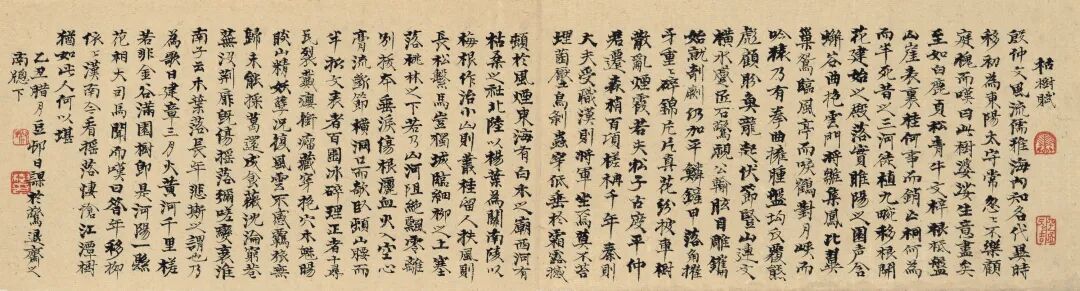 枯樹賦
殷仲文風流儒雅海內知名代異時
移初為東陽太守常忽〻不樂顧
庭槐而嘆曰此樹婆娑生意盡矣
至如白鹿貞松青牛文梓根柢盤
山崖表裏桂何事而銷亡桐何為
而半死昔之三河徙植九畹移根開
花建始之殿落實睢陽之園聲含
嶰谷曲抱雲門將雛集鳳比翼
巢鴛臨風亭而唳鶴對月峽而
吟猿乃有拳曲擁腫盤坳反覆熊
彪顧盼魚龍起伏節豎山連文
橫水蹙匠石驚視公輸眩目雕鐫
始就剞劂仍加平鱗鏟甲落角摧
牙重〻碎錦片片真花紛披草樹
散亂煙霞若夫松子古度平仲
君遷森梢百頃槎枿千年秦則
大夫受職漢則將軍坐焉莫不苔
埋菌壓鳥剝蟲穿低垂於霜露撼
頓於風煙東海有白木之廟西河有
枯桑之社北陸以楊葉為關南陵以
梅根作冶小山則叢桂留人扶風則
長松繫馬豈獨城臨細柳之上塞
落桃林之下若乃山河阻絕飄零離
別拔本垂淚傷根瀝血火入空心
膏流斷節橫洞口而欹臥頓山腰而
半折文衺者百圍冰碎理正者千尋
瓦裂戴癭銜瘤藏穿抱穴木魅睗
睒山精妖孽況復風雲不感羈旅無
歸未能採葛還成食薇沈淪窮巷
蕪沒荊扉既傷搖落彌嗟變衰淮
南子云木葉落長年悲斯之謂也乃
為歌曰建章三月火黃河千里槎
若非金谷滿園樹即是河陽一縣
花桓大司馬聞而嘆曰昔年移柳
依〻漢南今看搖落悽愴江潭樹
猶如此人何以堪
乙丑臘月邨日課於齋之
南窗下